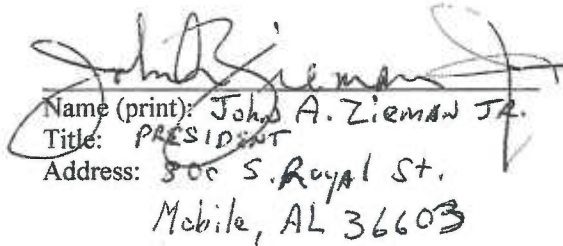 John A Zieman Jr
Name (print): John A. Zieman JR.
Title: PRESIDENT
Address: 800 S. Royal St.
Mobile, AL 36603